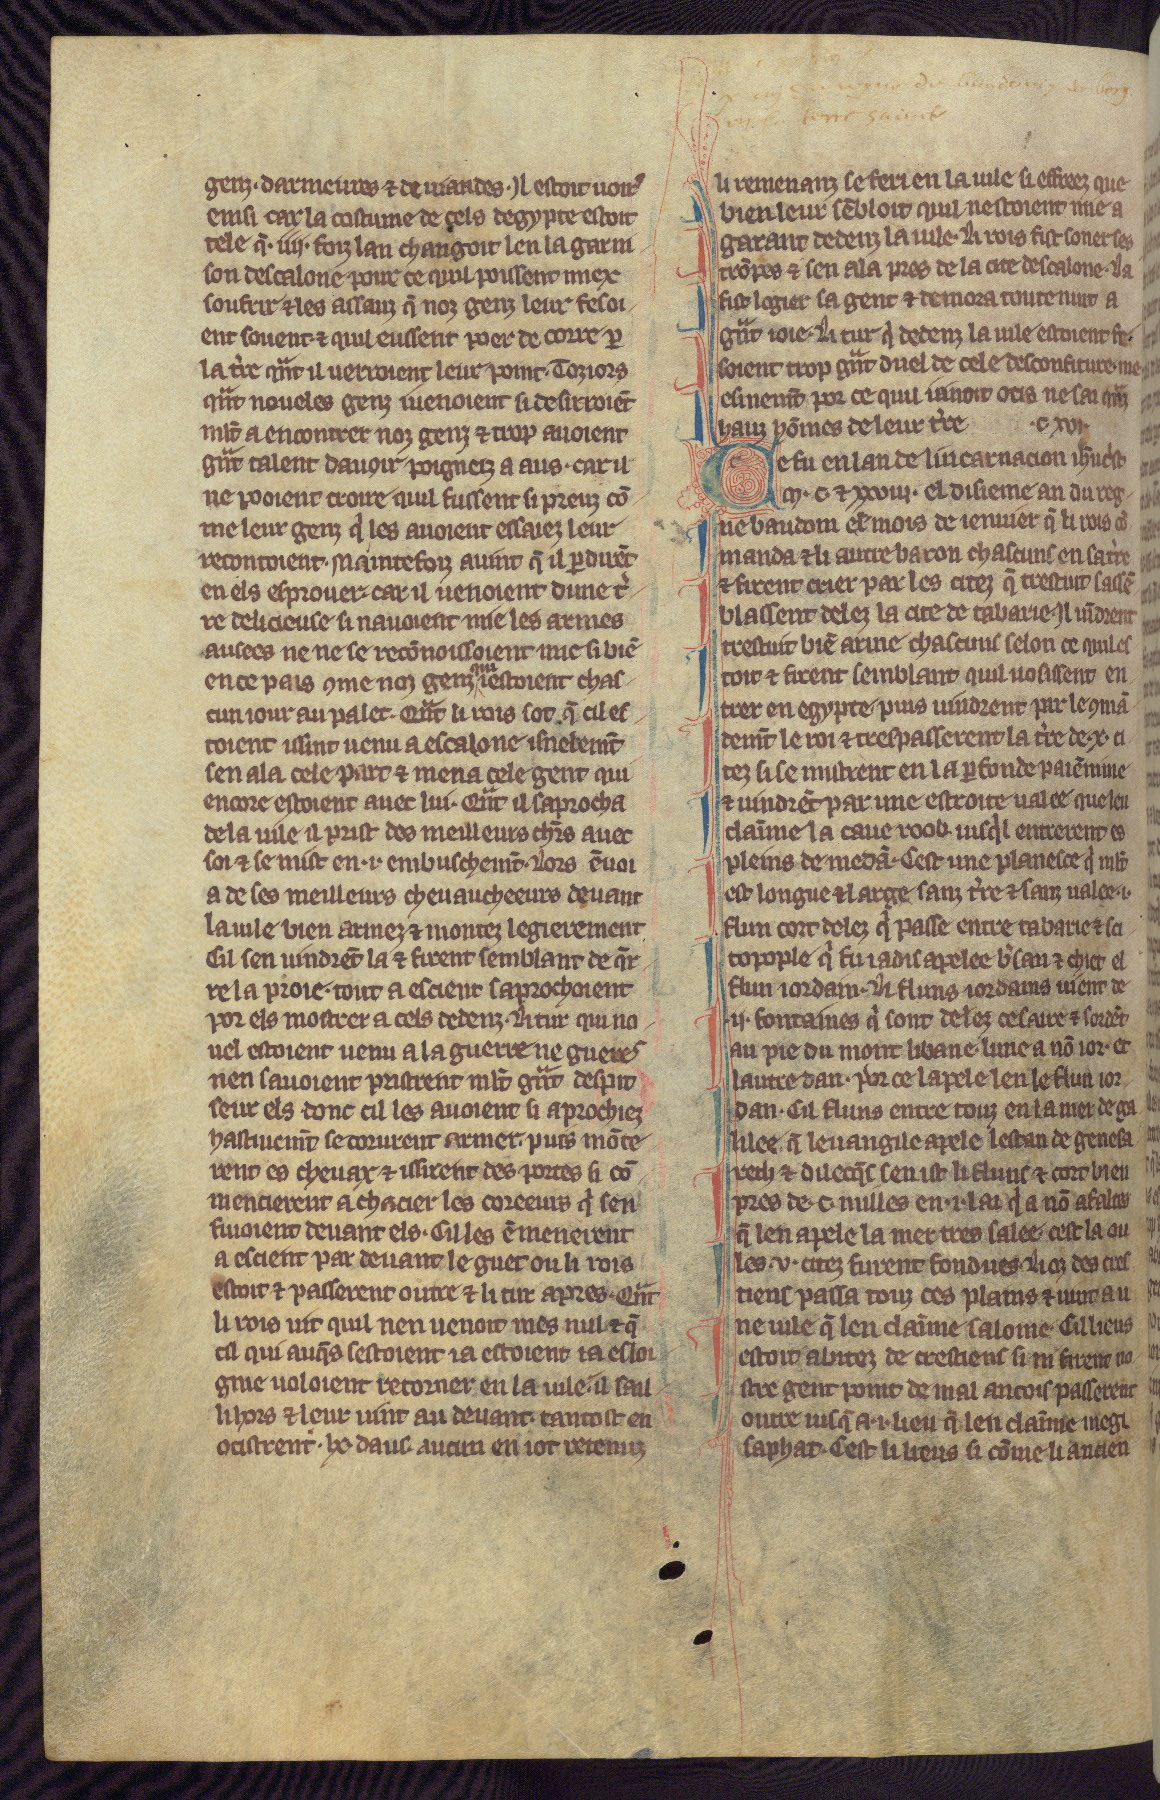 la terre sainte
genz. darmeures ⁊ de uiandes. Il estoit uoirs
einsi car la costume de cels degypte estoit
tele q̄ .iiij. foiz lan changoit len la garni
son descalone pour ce quil poissent miex
soufrir ⁊ les assauz q̄ noz genz leur fesoi
ent souent ⁊ quil eussent poer de corre ꝑ
la t̄re qn̄t il uerroient leur point. Toziors
qn̄t noueles genz iuenoient si desirroiēt
ml̄t a encontrer noz genz ⁊ trop auoient
gn̄t talent dauoir poigneiz a aus. car il
ne pooient croire quil fussent si preuz cō
me leur genz q̇ les auoient essaiez leur
recontoient. Maintefoiz auint q̄ il ꝑdirēt
en els esprouer. car il uenoient dune t̄
re delicieuse si nauoient mie les armes
ausees ne ne se recōnoissoient mie si biē
en ce pais ꝯme noz genz qui iestoient chas
cun iour au palet. Qn̄t li rois sot q̄ cil es
toient issint uenu a escalone isnelemt̄
sen ala cele part ⁊ mena cele gent qui
encore estoient auec lui. Qn̄t il saprocha
de la uile il prist des meilleurs chr̄s auec
soi ⁊ se mist en .i. embuschemt̄. Lors ēuoi
a de ses meilleurs cheuaucheeurs deuant
la uile bien armez ⁊ montez legierement
Cil sen uindrēt la ⁊ firent semblant de q̄r
re la proie. tout a escient saprochoient
por els mostrer a cels dedenz. Li tur qui no
uel estoient uenu a la guerre ne gueres
nen sauoient pristrent ml̄t gn̄t despit
seur els donc cil les auoient si aprochiez
hastiuemt̄ se corurent armer. puis mōte
rent es cheuax ⁊ issirent des portes si cō
mencierent a chacier les coreeurs q̇ sen
fuioient deuant els. Cil les ēmenerent
a escient par deuant le guet ou li rois
estoit ⁊ passerent outre ⁊ li tur apres. Qn̄t
li rois uit quil nen uenoit mes nul ⁊ q̄
cil qui auq̄s sestoient ia estoient ia esloi
gnie uoloient retorner en la uile. il sail
li hors ⁊ leur uint au deuant. tantost en
ocistrent .lx. daus. aucun en iot retenuz
li remenanz se feri en la uile si effreez que
bien leur sēbloit quil nestoient mie a
garant dedenz la uile. Li rois fist soner ses
trōpes ⁊ sen ala pres de la cite descalone. La
fist logier sa gent ⁊ demora toute nuit a
gn̄t ioie. Li tur q̇ dedenz la uile estoient fe
soient trop gn̄t duel de cele desconfiture. me
esmemt̄ por ce quil iauoit ocis ne sai qn̄z
hauz hōmes de leur t̄re .c xvi.
Ce fu en lan de lincarnacion ih̄ucrist
.M. C. ⁊ xxviii. el disieme an du reg
ne baudoin el mois de ienuier q̄ li rois cō
manda ⁊ li autre baron chascuns en sa t̄re
⁊ firent crier par les citez q̄ trestuit sassē
blassent delez la cite de tabarie. Il uīdrent
trestuit biē arme chascuns selon ce quil es
toit ⁊ firent semblant quil uosissent en
trer en egypte. puis uindrent par le ꝯmā
demt̄ le roi ⁊ trespasserent la t̄re de .x. ci
tez si se mistrent en la ꝑfonde paiēnime
⁊ uindrēt par une estroite ualee que len
claīme la caue roob. iusq̄l entrerent es
pleins de medā. Cest une planesce q̇ ml̄t
est longue ⁊ large sanz t̄re ⁊ sanz ualee .i.
flun cort delez q̇ passe entre tabarie ⁊ sci
topople q̇ fu iadis apelee b̄san ⁊ chiet el
flun iordain. Li fluns iordains uient de
.ij. fontaines q̇ sont delez cesaire ⁊ sordēt
au pie du mont libane. lune a nō ior. et
lautre dan. por ce lapele len le flun ior
dan. Cil fluns entre touz en la mer de ga
lilee. q̄ leuangile apele lestan de genesa
reth ⁊ dilecq̄s sen ist li fluns ⁊ cort bien
pres de .c. milles en .i. lai q̇ a nō afaltes
q̄ len apele la mer tres salee. cest la ou
les .v. citez furent fondues. Li oz des cres
tiens passa touz ces plains ⁊ uint a u
ne uile q̄ len claīme salome. Cil lieus
estoit abitez de crestiens si ni firent no
stre gent point de mal ancois passerent
outre iusq̄ a .i. lieu q̄ len claīme megi
saphat. Cest li lieus si cōme li ancien